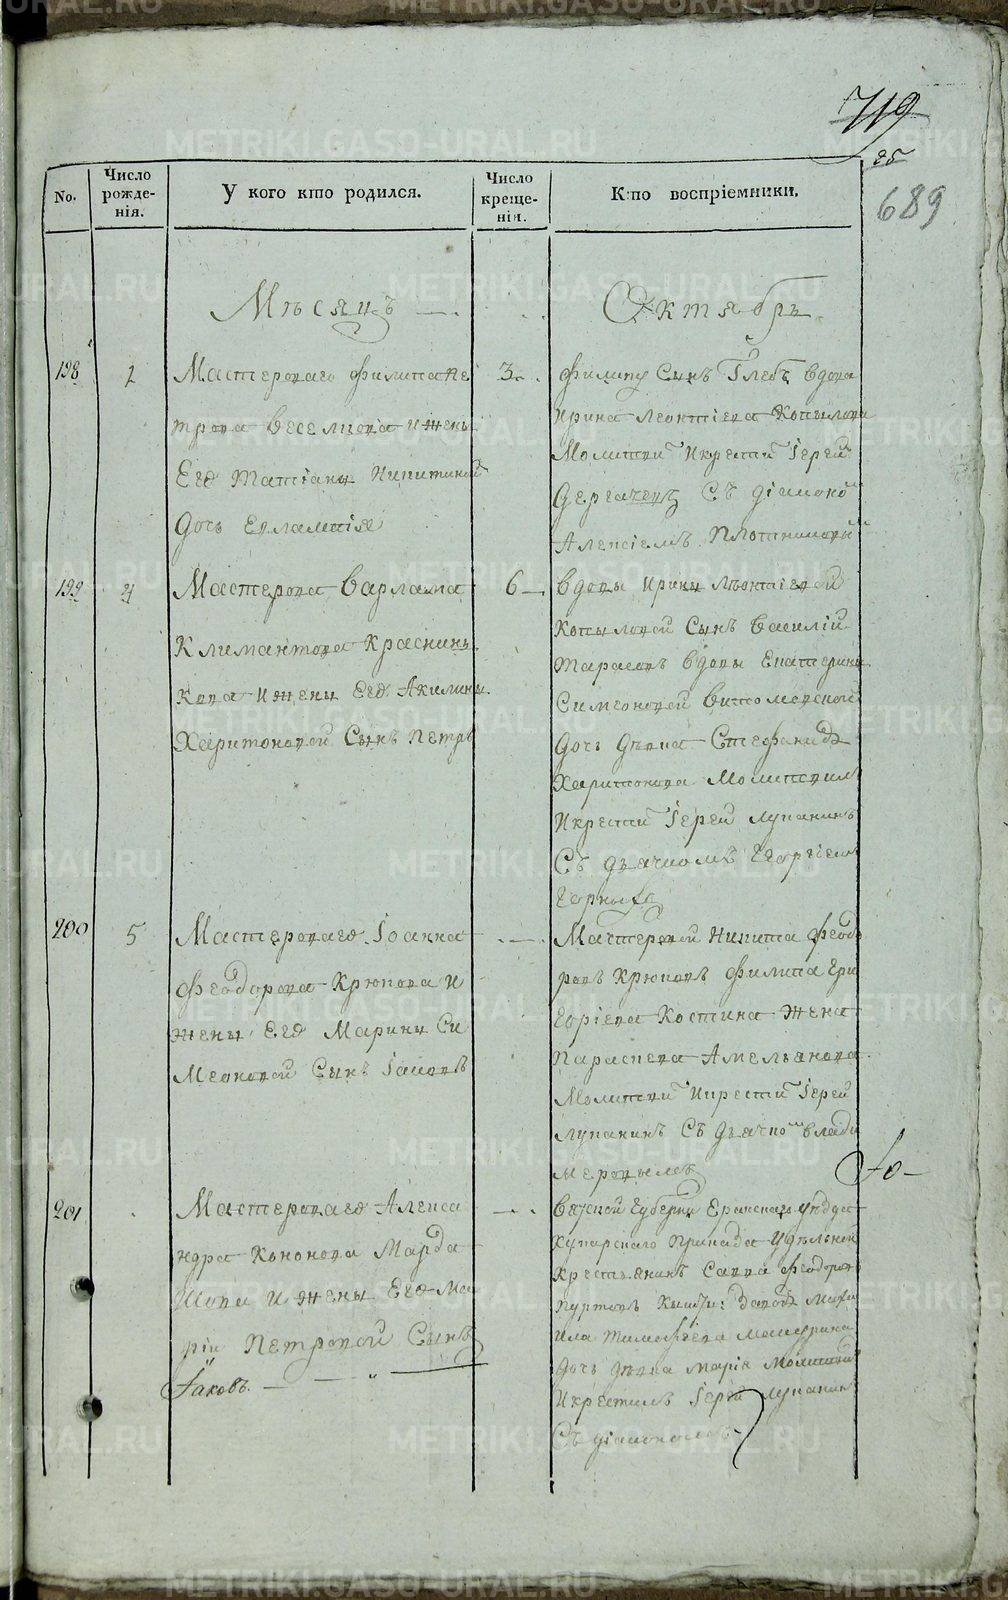 719
об
689
No.
Число рожденія.
У кого кто родился.
Число крещенія.
Кто воспріемники.
Мѣсяцъ
Октябрь
198
1
Мастероваго Филипа Пе
трова Веселкова и жены
Его Татіаны Никитиной
дочь Евлампія
3
Филипъ Сынъ Глебъ вдова
Ирина Леонтіева Копылова
Молитвил Икрестил Іерей
Съ діакономъ
Алексіемъ Плотниковымъ
199
4
Мастерова Варлама
Климантова Красним
кова и жены Его Акилины
Харитоновой Сынъ Петръ
6
Вдовы Ирины Леонтіевой
Копыловой Сынъ Василій
Тарасовъ вдовы Екатерины
Симеоновой
дочь дѣвка Стефанида
Харитонова Молитвилъ
Икрестил Іерей Лупанинъ
Съ дьячкомъ Георгіемъ
200
5
Мастероваго Іоанна
Феодорова Крюкова и
жены Его Марины Си
меоновой Сынъ Іаковъ
Мастеровой Никита Феодо
ровъ Крюковъ Филипа Гри
горіева Костина жена
Параскева Амельянова
Молитвил Икрестил Іерей
Лупанинъ Съ дьячко
201
Мастероваго Алекса
ндра Кононова Марда
шова и жены Его Ма
ріи Петровой Сынъ
Іаковъ.
Вятской Губерніи Еранскаго уѣзда
Приказа Удѣльной
Крестьянинъ Савва Феодоровъ
Миха
ила Тимофѣева
дочь дѣвка Марія Молитвил
Икрестилъ Іерей Лупанинъ
Съ діакономъ